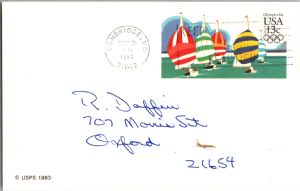 CAMBRIDGE, MD
PM
1984
21613
Olympics 84
USA
13c
R. Daffin
707 Morris St
Oxford
21654
© USPS 1983